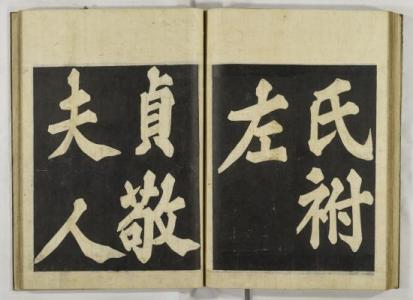 氏祔
左
貞敬
夫人